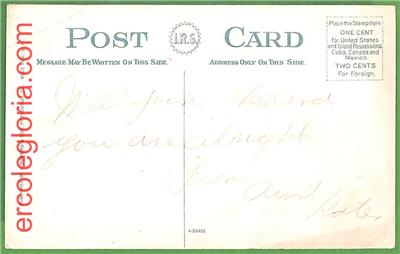 POST I.R.S. CARD
MESSAGE MAY BE WRITTEN ON THIS SIDE.
ADDRESS ONLY ON THIS SIDE.
Place the Stamp here
ONE CENT
For United States
and Island Possessions,
Cuba, Canada and
Mexico.
TWO CENTS
For Foreign.
Well
you are alright
From
Aunt
ercolegloria.com